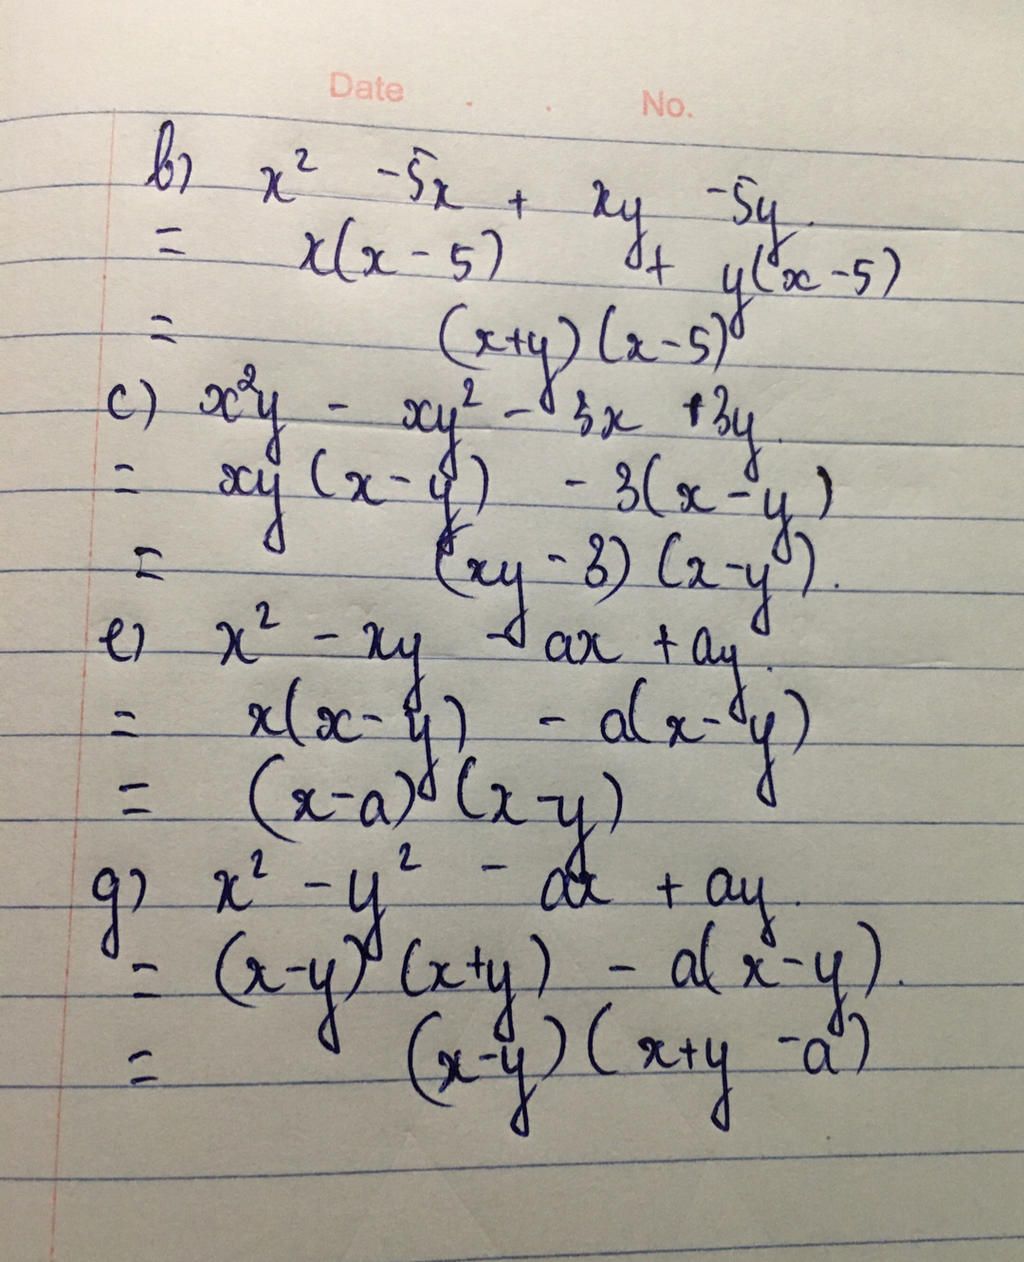 Date . . No.
b) x² -5x + xy -5y.
= x(x-5) + y(x-5)
= (x+y)(x-5)
c) x²y - xy² - 3x +3y.
= xy(x-y) - 3(x-y)
= (xy-3)(x-y).
e) x² - xy - ax + ay.
= x(x-y) - a(x-y)
= (x-a)(x-y)
g) x² - y² - ax + ay.
= (x-y)(x+y) - a(x-y).
= (x-y)(x+y-a)